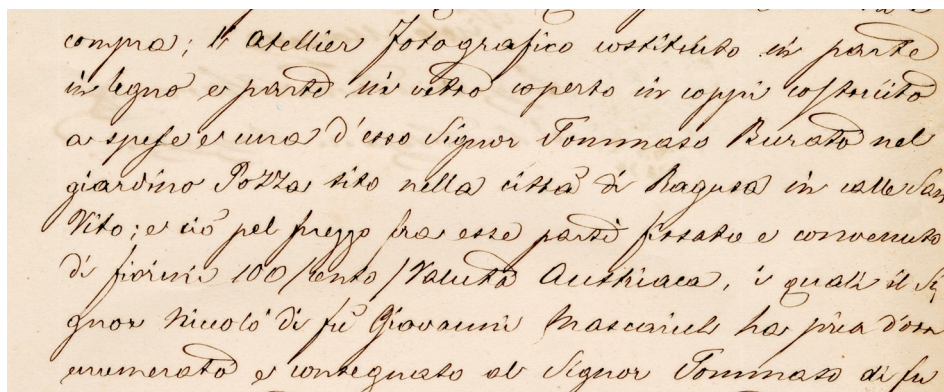 compra; l'Atellier fotografico costituito in parte
in legno e parte in vetro coperto in coppi costruito
a spese e cura d'esso Signor Tommaso Burato nel
giardino Pozza sito nella città di Ragusa in calle San
Vito; e ciò pel prezzo fra esse parti fissato e convenuto
di fiorini 100/cento/Valuta Austriaca, i quali il Si
gnor Niccolò di fu Giovanni ha pria d'ora
enumerato e consegnato al Signor Tommaso di fu